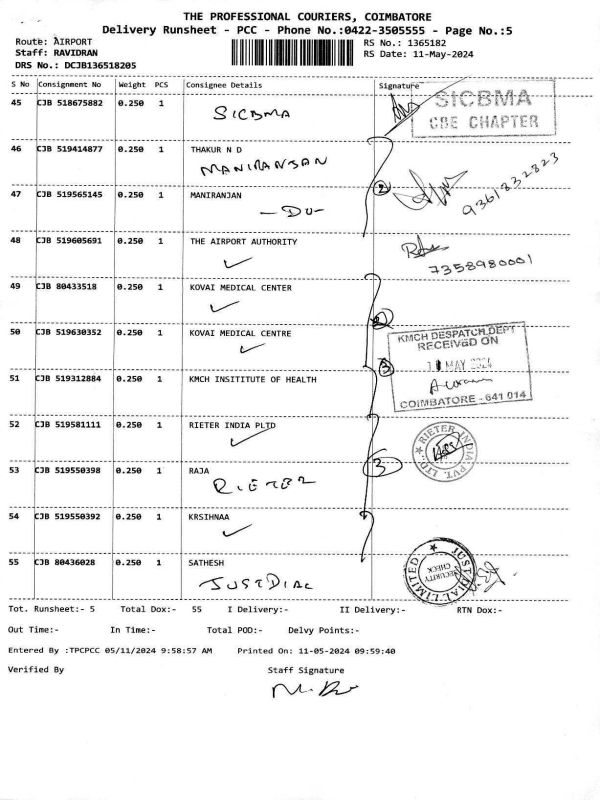 THE PROFESSIONAL COURIERS, COIMBATORE
Delivery Runsheet - PCC - Phone No.:0422-3505555 - Page No.:5
Route: AIRPORT
RS No.: 1365182
Staff: RAVIDRAN
RS Date: 11-May-2024
DRS No.: DCJB136518205
S No Consignment No Weight PCS Consignee Details Signature
45 CJB 518675882 0.250 1
SICBMA
SICBMA
CBE CHAPTER
46 CJB 519414877 0.250 1 THAKUR N D
MANIRANJAN
47 CJB 519565145 0.250 1 MANIRANJAN
- DO -
2
9361832823
48 CJB 519605691 0.250 1 THE AIRPORT AUTHORITY
7358980001
49 CJB 80433518 0.250 1 KOVAI MEDICAL CENTER
50 CJB 519630352 0.250 1 KOVAI MEDICAL CENTRE
3
KMCH DESPATCH DEPT
RECEIVED ON
MAY 2024
COIMBATORE - 641 014
51 CJB 519312884 0.250 1 KMCH INSTITITUTE OF HEALTH
52 CJB 519581111 0.250 1 RIETER INDIA PLTD
RIETER INDIA PVT. LTD.
53 CJB 519550398 0.250 1 RAJA
RIETER
3
54 CJB 519550392 0.250 1 KRSIHNAA
55 CJB 80436028 0.250 1 SATHESH
JUSTDIAL
JUSTDIAL LIMITED
SECURITY
CHECK
Tot. Runsheet:- 5 Total Dox:- 55 I Delivery:- II Delivery:- RTN Dox:-
Out Time:- In Time:- Total POD:- Delvy Points:-
Entered By :TPCPCC 05/11/2024 9:58:57 AM Printed On: 11-05-2024 09:59:40
Verified By Staff Signature